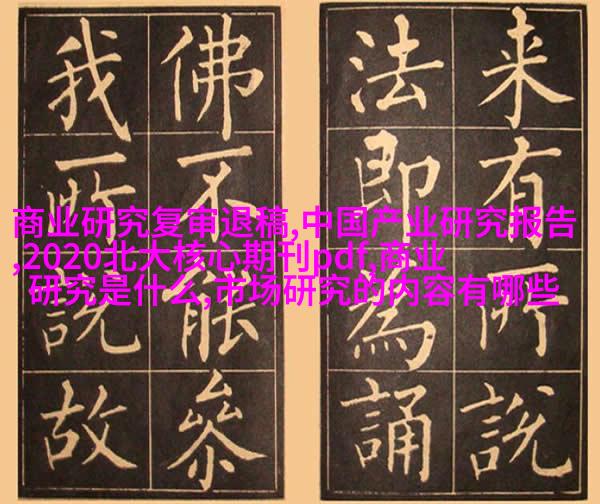 来有所說
法即為誦
佛不能參
我所說故
商业研究复审退稿,中国产业研究报告
,2020北大核心期刊pdf,商业
研究是什么,市场研究的内容有哪些